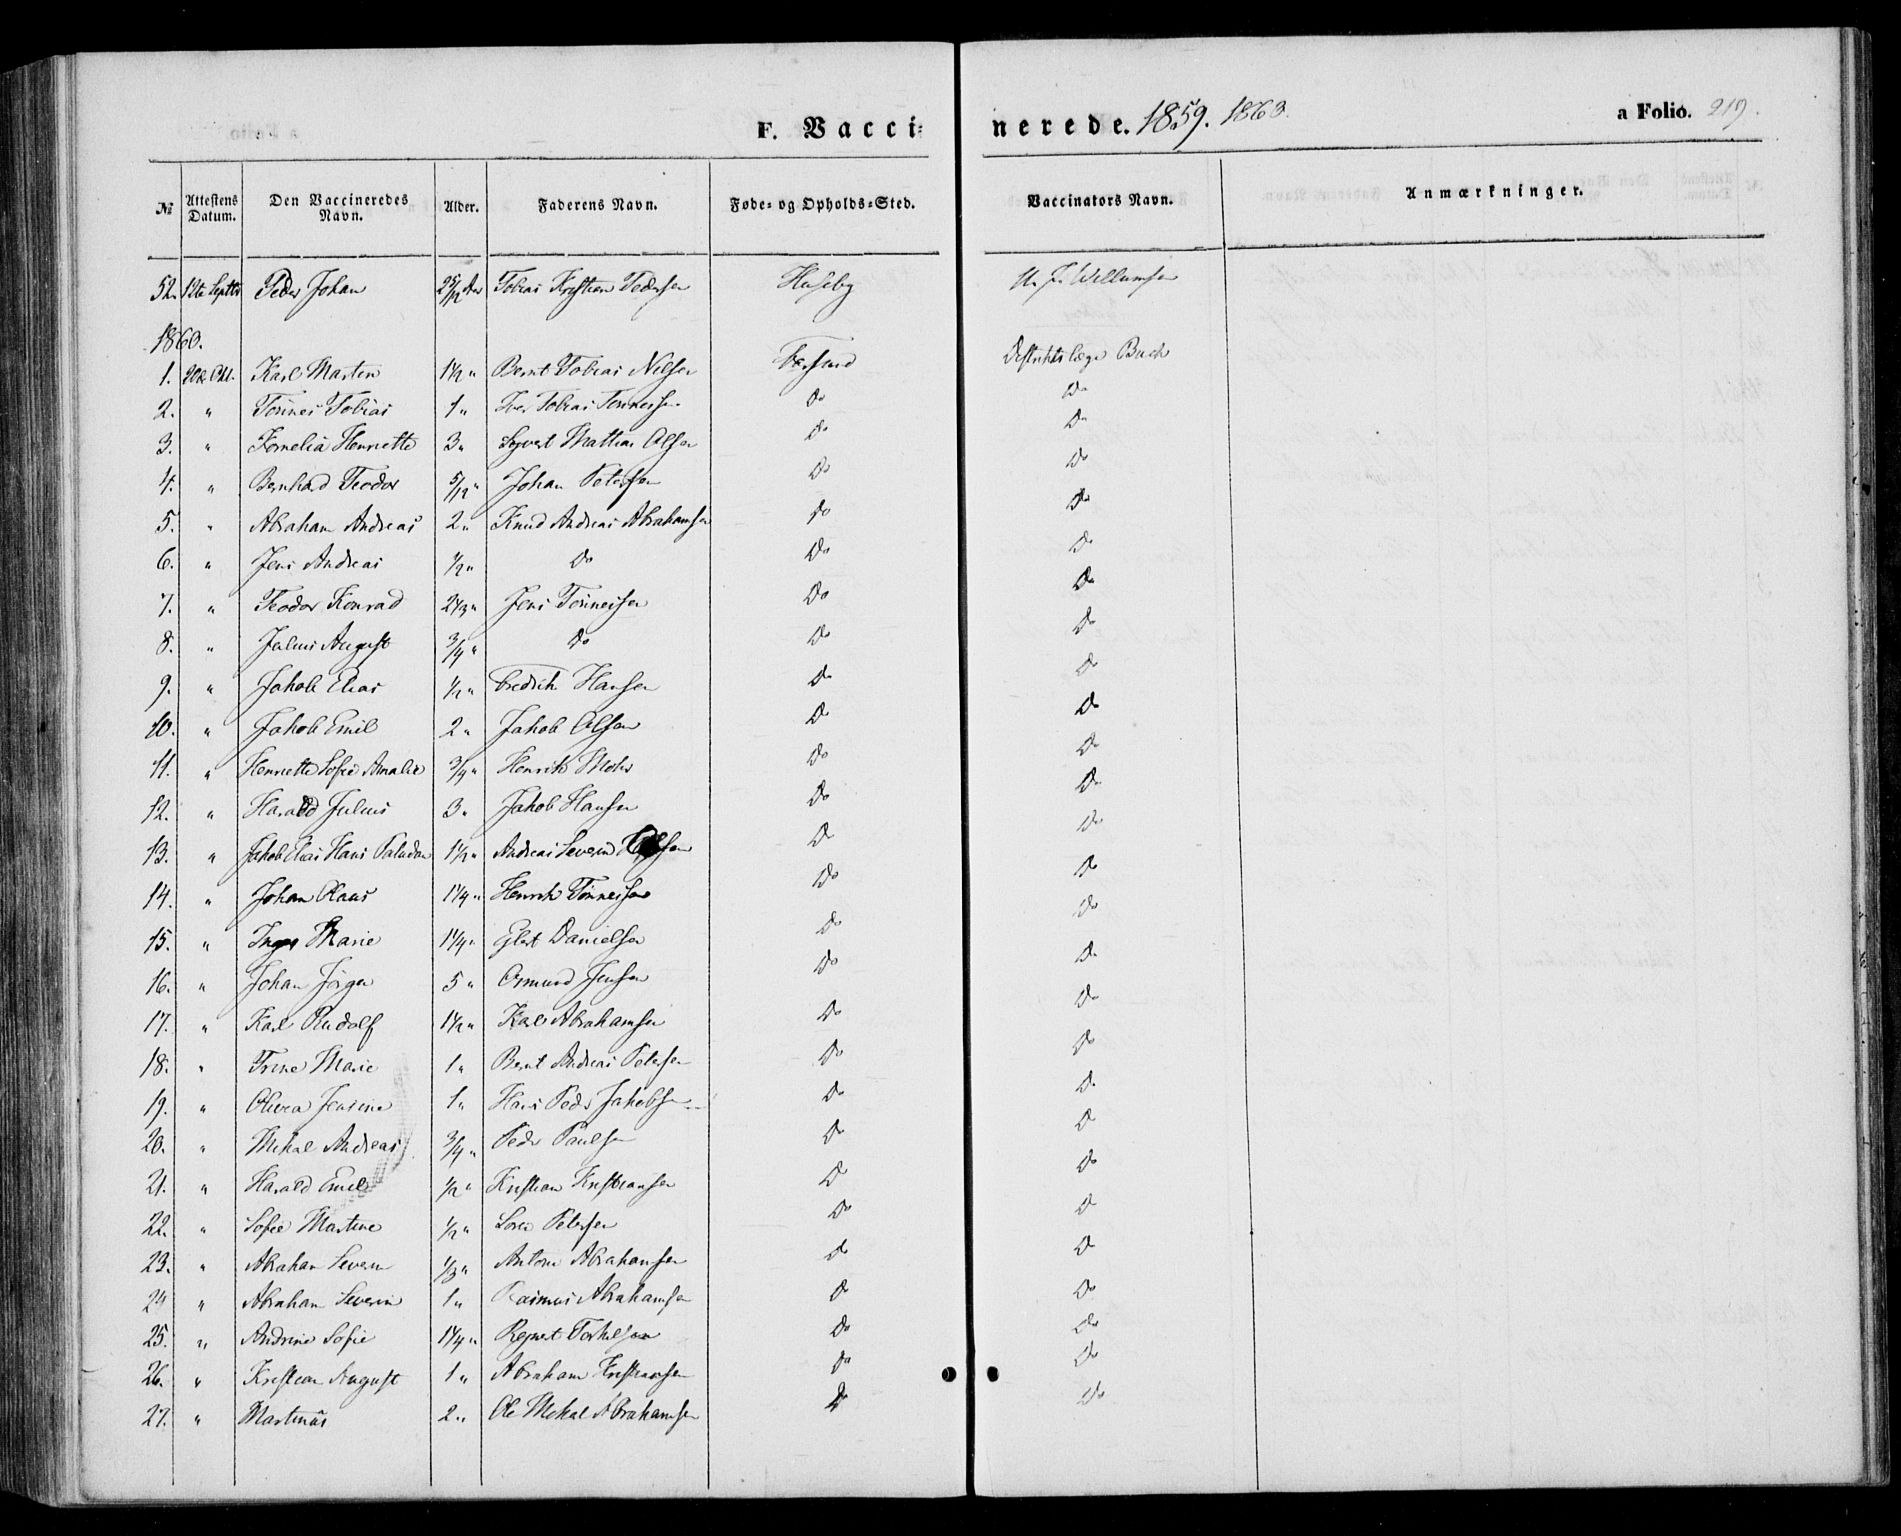 F. Vaccinerede. 1859. 1863. a Folio. 219.
№ Attestens Datum. Den Vaccineredes Navn. Alder. Faderens Navn. Føde- og Opholds-Sted. Vaccinators Navn. Anmærkninger.
52. 12te Septbr Peder Johan Tobias Kristian Pedersen Huseby Willumsen
1860.
1. 20de Okt. Karl Martin 1½ " Bernt Tobias Nilsen Farsund Distriktslæge Buch
2. " Tønnes Tobias 1 " Iver Tobias Tønnessen Do Do
3. " Kornelia Henriette 3 " Sigvert Mathias Olsen Do Do
4. " Bernhard Teodor 5/12 " Johan Petersen Do Do
5. " Abraham Andreas 2 " Knud Andreas Abrahamsen Do Do
6. " Jens Andreas ½ " Do Do Do
7. " Teodor Konrad 2⅓ " Jens Tønnesen Do Do
8. " Julius August ¾ " Do Do Do
9. " Jakob Elias ½ " Fredrik Hansen Do Do
10. " Jakob Emil 2 " Jakob Olsen Do Do
11. " Henriette Sofie Amalie ¾ " Henrik Do Do
12. " Harald Julius 3 " Jakob Hansen Do Do
13. " Jakob Elias Hans Paludan 1½ " Andreas Severin Do Do
14. " Johan Klaus 1¼ " Henrik Tønnesen Do Do
15. " Inger Marie 1¼ " Eilert Danielsen Do Do
16. " Johan Jørgen 5 " Osmund Jensen Do Do
17. " Karl Rudolf 1½ " Karl Abrahamsen Do Do
18. " Trine Marie 1 " Bernt Andreas Petersen Do Do
19. " Olivia Jensine 1 " Hans Peder Jakobsen Do Do
20. " Mikal Andreas ¾ " Peder Paulsen Do Do
21. " Harald Emil ½ " Kristian Kristiansen Do Do
22. " Sofie Martine ½ " Søren Petersen Do Do
23. " Abraham Severin ⅓ " Anton Abrahamsen Do Do
24 " Abraham Severin 1 " Rasmus Abrahamsen Do Do
25. " Andrine Sofie 1¼ " Regnert Torkelsen Do Do
26. " Kristian August 1 " Abraham Kristiansen Do Do
27. " Martinus 2 " Ole Mikal Abrahamsen Do Do